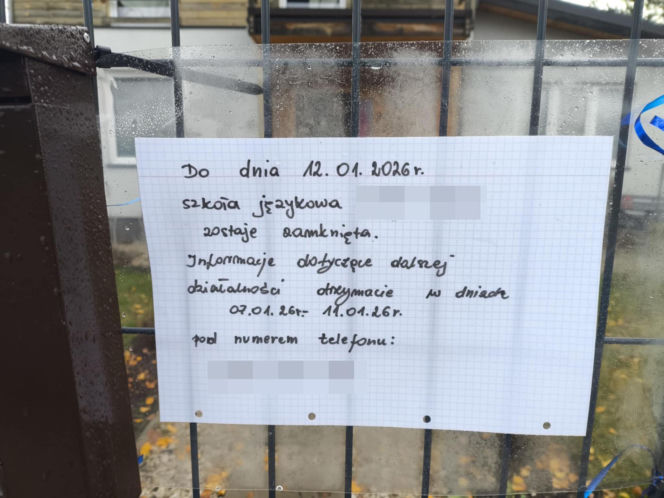 Do dnia 12.01.2026r.
szkoła językowa
zostaje zamknięta.
Informacje dotyczące dalszej
działalności otrzymacie w dniach
07.01.26r.- 11.01.26r.
pod numerem telefonu: